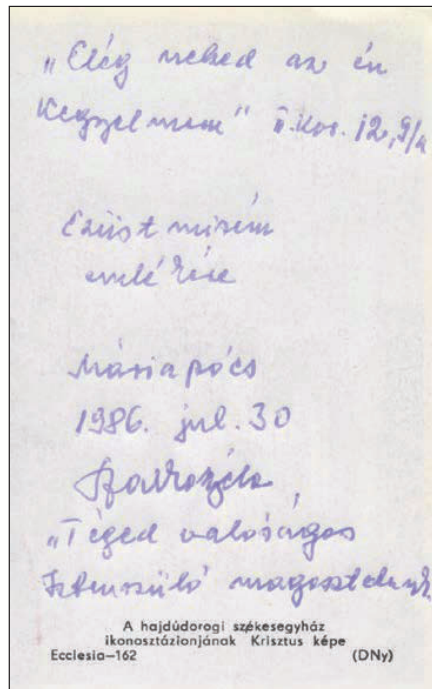 „Elég neked az én
Kegyelmem" II. Kor. 12,9/a
Ezüst misém
emlékére
Máriapócs
1986. jul. 30
„Téged valóságos
Istenszülő magasztalunk.
A hajdúdorogi székesegyház
ikonosztázionjának Krisztus képe
Ecclesia—162 (DNy)